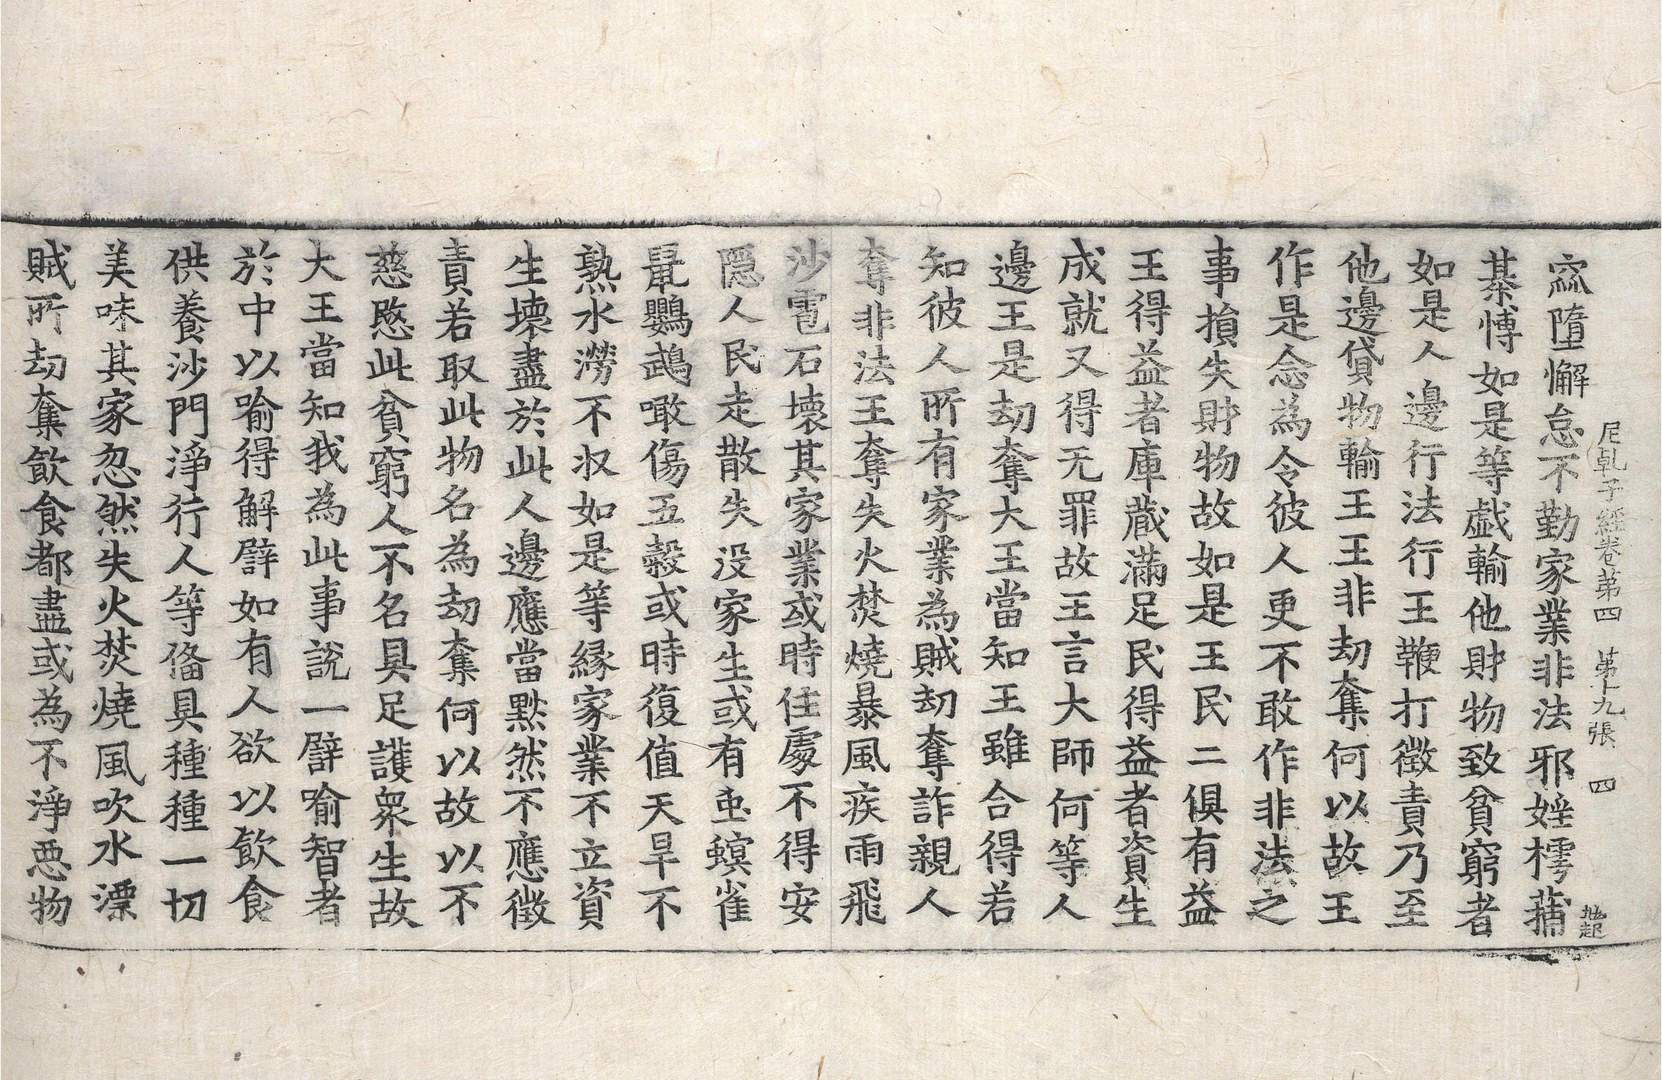 尼乹子經卷第四 第十九張 四
窳墮懈怠不勤家業非法邪婬樗蒱
棊博如是等戱輸他財物致貧窮者
如是人邊行法行王鞭打徵責乃至
他邊貸物輸王王非劫奪何以故王
作是念為令彼人更不敢作非法之
事損失財物故如是王民二俱有益
王得益者庫藏滿足民得益者資生
成就又得无罪故王言大師何等人
邊王是劫奪大王當知王雖合得若
知彼人所有家業為賊劫奪詐親人
奪非法王奪失火焚燒暴風疾雨飛
沙雹石壞其家業或時住處不得安
隠人民走散失没家生或有虫螟雀
鼠鸚鵡噉傷五穀或時復值天旱不
熟水澇不収如是等縁家業不立資
生壞盡於此人邊應當黙然不應徵
責若取此物名為劫奪何以故以不
慈愍此貧窮人不名具足護衆生故
大王當知我為此事説一譬喻智者
於中以喻得解譬如有人欲以飲食
供養沙門淨行人等俻具種種一切
美味其家忽然失火焚燒風吹水漂
賊所劫奪飲食都盡或為不淨惡物